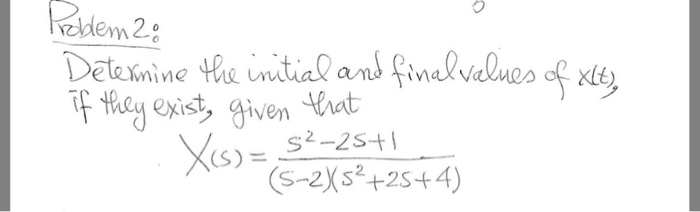 Problem 2:
Determine the initial and final values of x(t),
if they exist, given that
X(s) = s²-2s+1 / (s-2)(s²+2s+4)